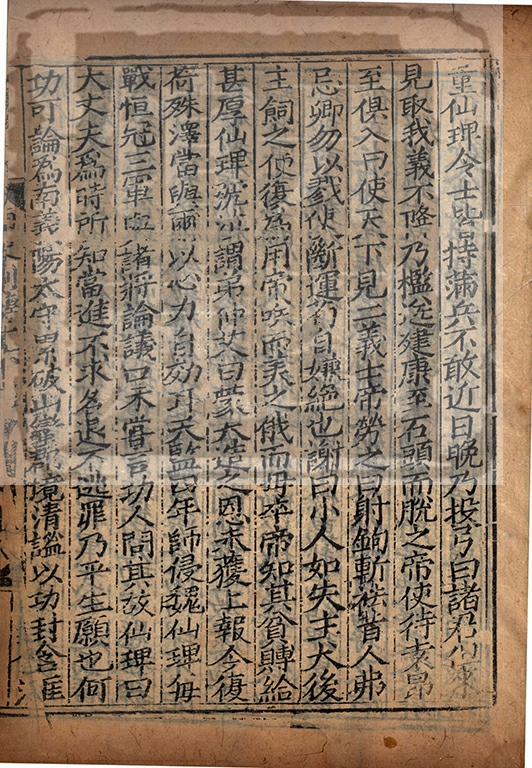 重仙琕令士皆持滿兵不敢近日晚乃投弓曰諸君但來
見取我義不降乃檻送建康至石頭而脫之帝使待袁昂
至俱入曰使天下見二義士帝勞之曰射鉤斬袪昔人弗
忌卿勿以戮使斷運苟自嫌絶也謝曰小人如失主犬後
主飼之便復爲用帝咲而美之俄而母卒帝知其貧賻給
甚厚仙琕號泣謂弟仲艾曰蒙大造之恩未獲上報今復
荷殊澤當與爾以心力自効耳天監四年師侵魏仙琕每
戰恒冠三軍與諸將論議口未嘗言功人問其故仙琕曰
大丈夫爲時所知當進不求名退不逃罪乃平生願也何
功可論爲南義陽太守累破山蠻郡境清謐以功封含洭